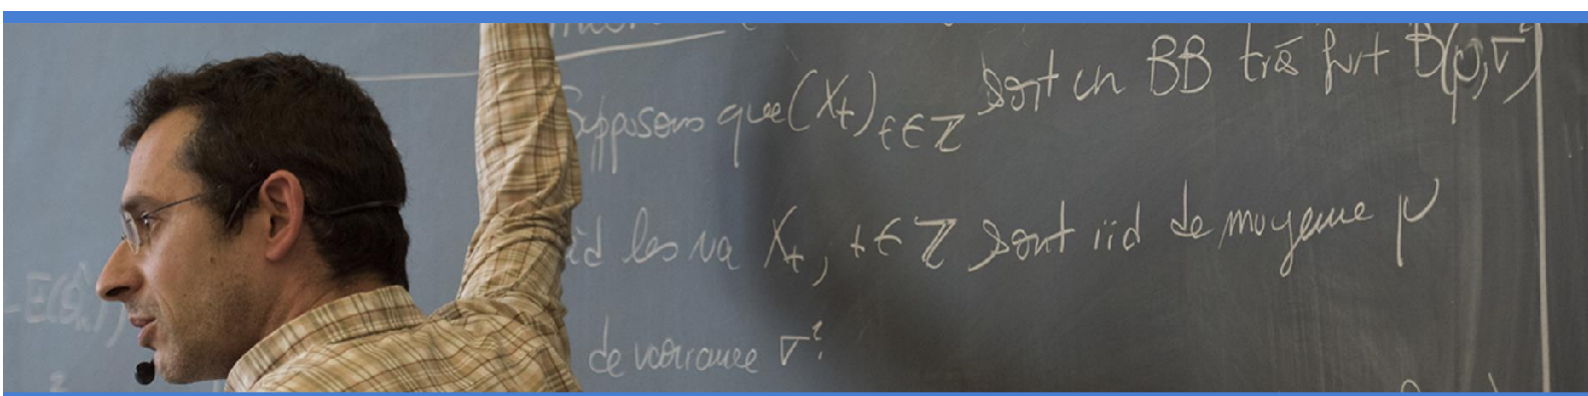 Supposons que (X_t)_{t∈ℤ} soit un BB très fort B(μ,σ²)
id les va X_t, t∈ℤ sont iid de moyenne μ
-E(θ̂_n)
de variance σ².